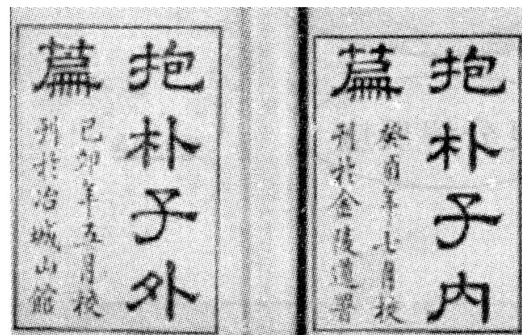 抱朴子内
篇
癸酉年七月校
刊於金陵道署
抱朴子外
篇
己卯年五月校
刊於冶城山館